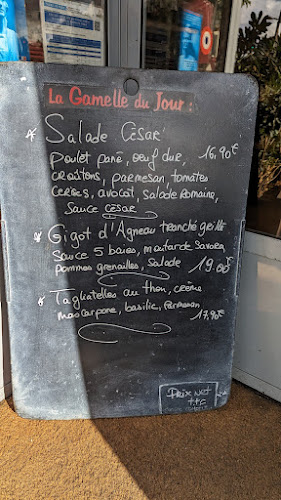 La Gamelle du Jour :
Salade César
Poulet pané, oeuf dur, 16,90€
croûtons, parmesan, tomates
cerises, avocat, salade romaine,
sauce césar
Gigot d'Agneau tranché grillé
sauce 5 baies, moutarde savora
pommes grenailles, salade 19.00€
Tagliatelles au thon, crème
mascarpone, basilic, parmesan
17,90€
Prix net
TTC